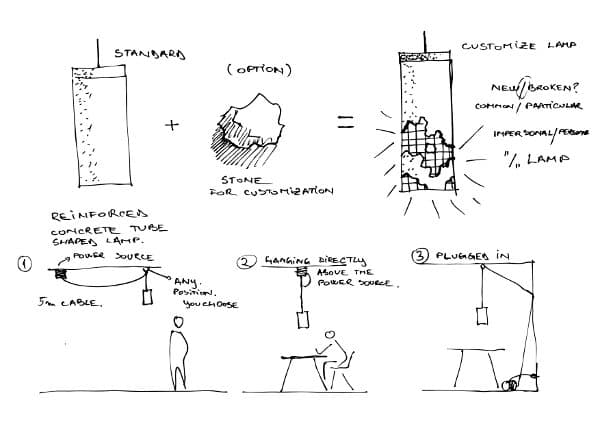 STANDARD
(OPTION)
+
=
STONE
FOR CUSTOMIZATION
CUSTOMIZE LAMP
NEW//BROKEN?
COMMON/PARTICULAR
IMPERSONAL/
"/,, LAMP
REINFORCED
CONCRETE TUBE
SHAPED LAMP.
1
POWER SOURCE
5m CABLE.
ANY
POSITION.
YOU CHOOSE
2 HANGING DIRECTLY
ABOVE THE
POWER SOURCE.
3 PLUGGED IN